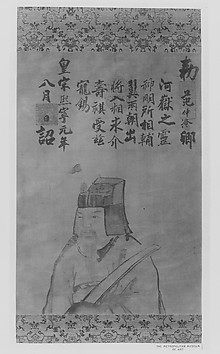 勅
范仲淹卿
河嶽之靈
神明所相輔
異兩朝出
将入相求介
壽祺受玆
寵錫
皇宋熙寧元年
八月
日
詔
THE METROPOLITAN MUSEUM
OF ART